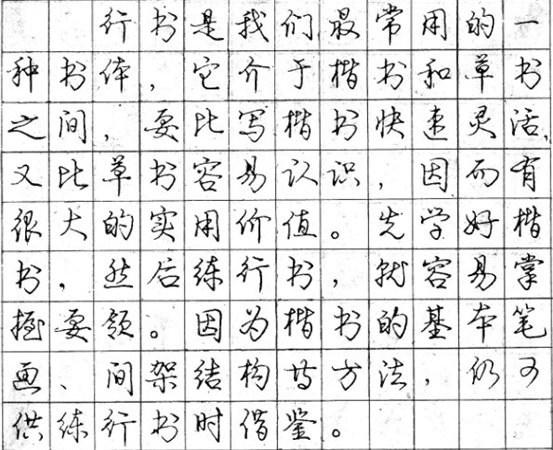 行书是我们最常用的一
种书体，它介于楷书和草书
之间，要比写楷书快速灵活，
又比草书容易认识，因而有
很大的实用价值。先学好楷
书，然后练行书，就容易掌
握要领。因为楷书的基本笔
画、间架结构等方法，仍可
供练行书时借鉴。